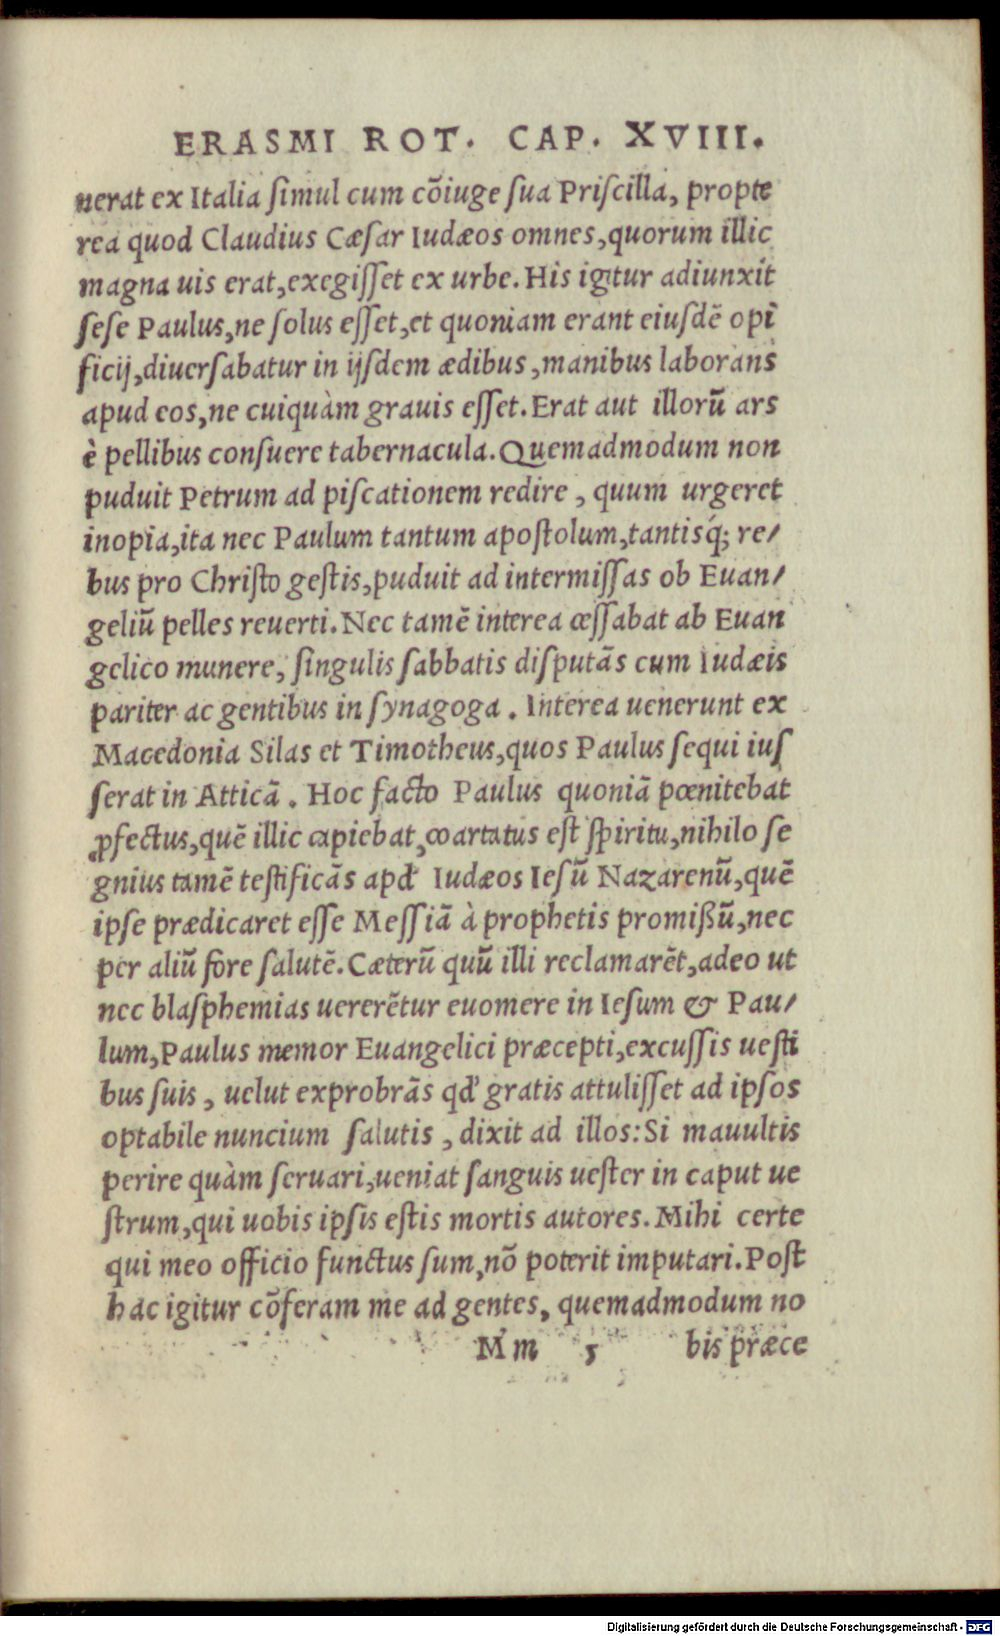 ERASMI ROT. CAP. XVIII.
nerat ex Italia ſimul cum cõiuge ſua Priſcilla, propte
rea quod Claudius Cæſar Iudæos omnes, quorum illic
magna uis erat, exegiſſet ex urbe. His igitur adiunxit
ſeſe Paulus, ne ſolus eſſet, et quoniam erant eiuſdẽ opĩ
ficij, diuerſabatur in ijſdem ædibus, manibus laborans
apud eos, ne cuiquàm grauis eſſet. Erat aut illorũ ars
è pellibus conſuere tabernacula. Quemadmodum non
puduit Petrum ad piſcationem redire, quum urgeret
inopia, ita nec Paulum tantum apoſtolum, tantisq́; re/
bus pro Chriſto geſtis, puduit ad intermiſſas ob Euan/
geliũ pelles reuerti. Nec tamẽ interea ceſſabat ab Euan
gelico munere, ſingulis ſabbatis diſputãs cum Iudæis
pariter ac gentibus in ſynagoga. Interea uenerunt ex
Macedonia Silas et Timotheus, quos Paulus ſequi iuſ
ſerat in Atticã. Hoc facto Paulus quoniã pœnitebat
ꝓfectus, quẽ illic capiebat, coartatus eſt ſpiritu, nihilo ſe
gnius tamẽ teſtificãs apď Iudæos Ieſũ Nazarenũ, quẽ
ipſe prædicaret eſſe Meſſiã à prophetis promißũ, nec
per aliũ fore ſalutẽ. Cæterũ quũ illi reclamarẽt, adeo ut
nec blaſphemias uererẽtur euomere in Ieſum & Pau/
lum, Paulus memor Euangelici præcepti, excuſſis ueſti
bus ſuis, uelut exprobrãs qď gratis attuliſſet ad ipſos
optabile nuncium ſalutis, dixit ad illos: Si mauultis
perire quàm ſeruari, ueniat ſanguis ueſter in caput ue
ſtrum, qui uobis ipſis eſtis mortis autores. Mihi certe
qui meo officio functus ſum, nõ poterit imputari. Poſt
hac igitur cõferam me ad gentes, quemadmodum no
Mm 5 bis præce
Digitalisierung gefördert durch die Deutsche Forschungsgemeinschaft - DFG